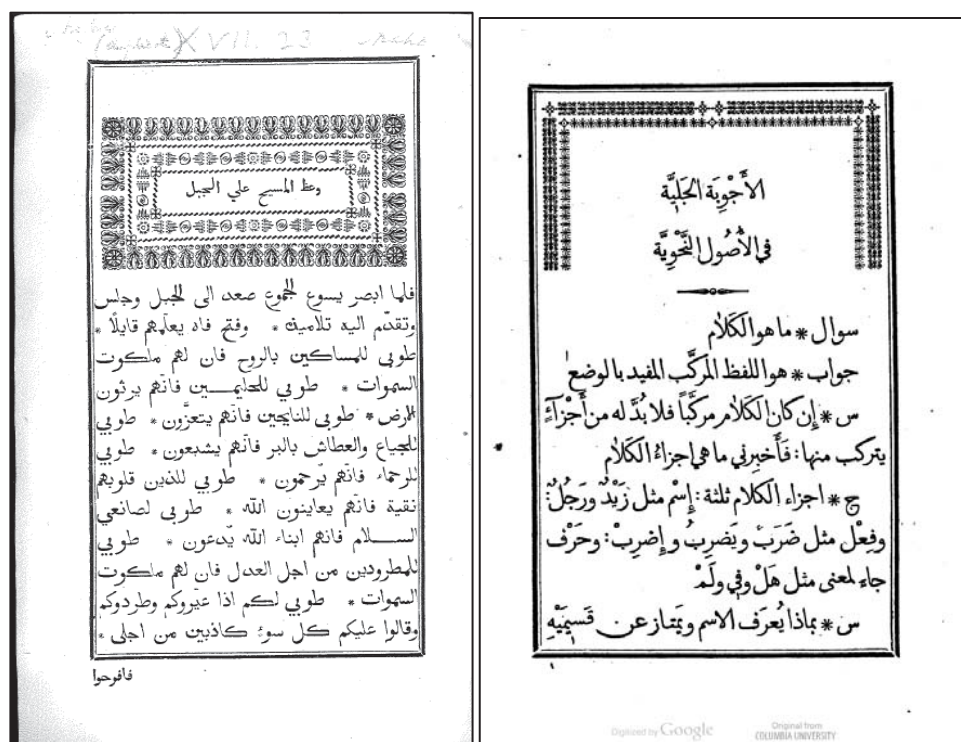 XVII. 23
وعظ المسيح علي الجبل
فلما ابصر يسوع الجموع صعد الى الجبل وجلس
وتقدّم اليه تلاميذه * وفتح فاه يعلّمهم قايلًا *
طوبي للمساكين بالروح فان لهم ملكوت
السموات * طوبي للحليمـــين فانّهم يرثون
الارض * طوبي للنايحين فانّهم يتعزّون * طوبي
للجياع والعطاش بالبر فانّهم يشبعون * طوبي
للرحماء فانّهم يُرحمون * طوبي للذين قلوبهم
نقية فانّهم يعاينون الله * طوبي لصانعي
الســـلام فانهم ابناء الله يُدعون * طوبي
للمطرودين من اجل العدل فان لهم ملكوت
السموات * طوبي لكم اذا عيّروكم وطردوكم
وقالوا عليكم كل سوءٍ كاذبين من اجلى *
فافرحوا
الأَجْوِبَة الجَلِيَّة
في الأُصُول النَّحْوِيَّة
سوال * ما هو الكَلَام
جواب * هو اللفظ المركَّب المفيد بالوضع
س * إن كان الكَلَام مركَّباً فلا بُدَّ له من أَجْزَآءٍ
يتركب منها: فَأَخبِرني ما هي اجزاءُ الكَلَام
ج * اجزاء الكلام ثلثة: إِسْم مثل زَيْدٌ ورَجُلٌ:
وفِعْل مثل ضَرَبَ ويَضرِبُ وإِضرِبْ: وحَرْف
جاء لمعنى مثل هَلْ وفي ولَمْ
س * بماذا يُعرَف الاسم ويَمتاز عن قَسِيمَيْهِ
١
Digitized by Google
Original from
COLUMBIA UNIVERSITY